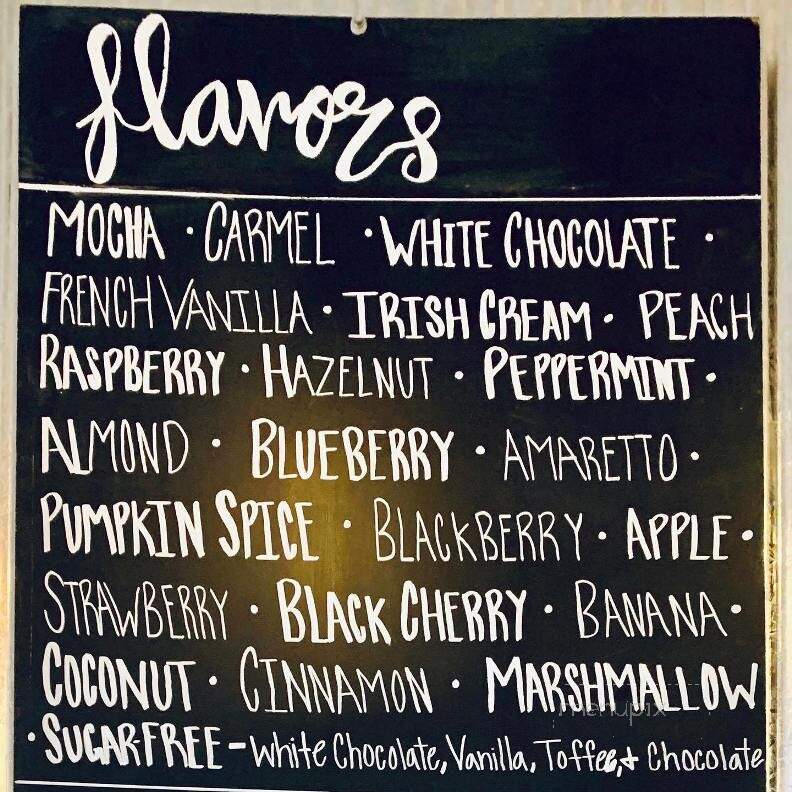 flavors
MOCHA · CARMEL · WHITE CHOCOLATE ·
FRENCH VANILLA · IRISH CREAM · PEACH
RASPBERRY · HAZELNUT · PEPPERMINT ·
ALMOND · BLUEBERRY · AMARETTO ·
PUMPKIN SPICE · BLACKBERRY · APPLE ·
STRAWBERRY · BLACK CHERRY · BANANA ·
COCONUT · CINNAMON · MARSHMALLOW
menupix
· SUGAR-FREE - White Chocolate, Vanilla, Toffee, + Chocolate